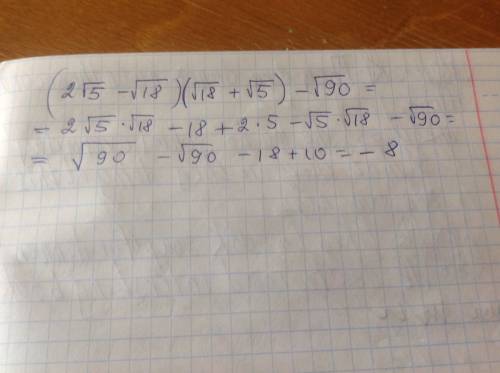 (2√5 - √18)(√18 + √5) - √90 =
= 2√5 · √18 - 18 + 2 · 5 - √5 · √18 - √90 =
= √90 - √90 - 18 + 10 = - 8